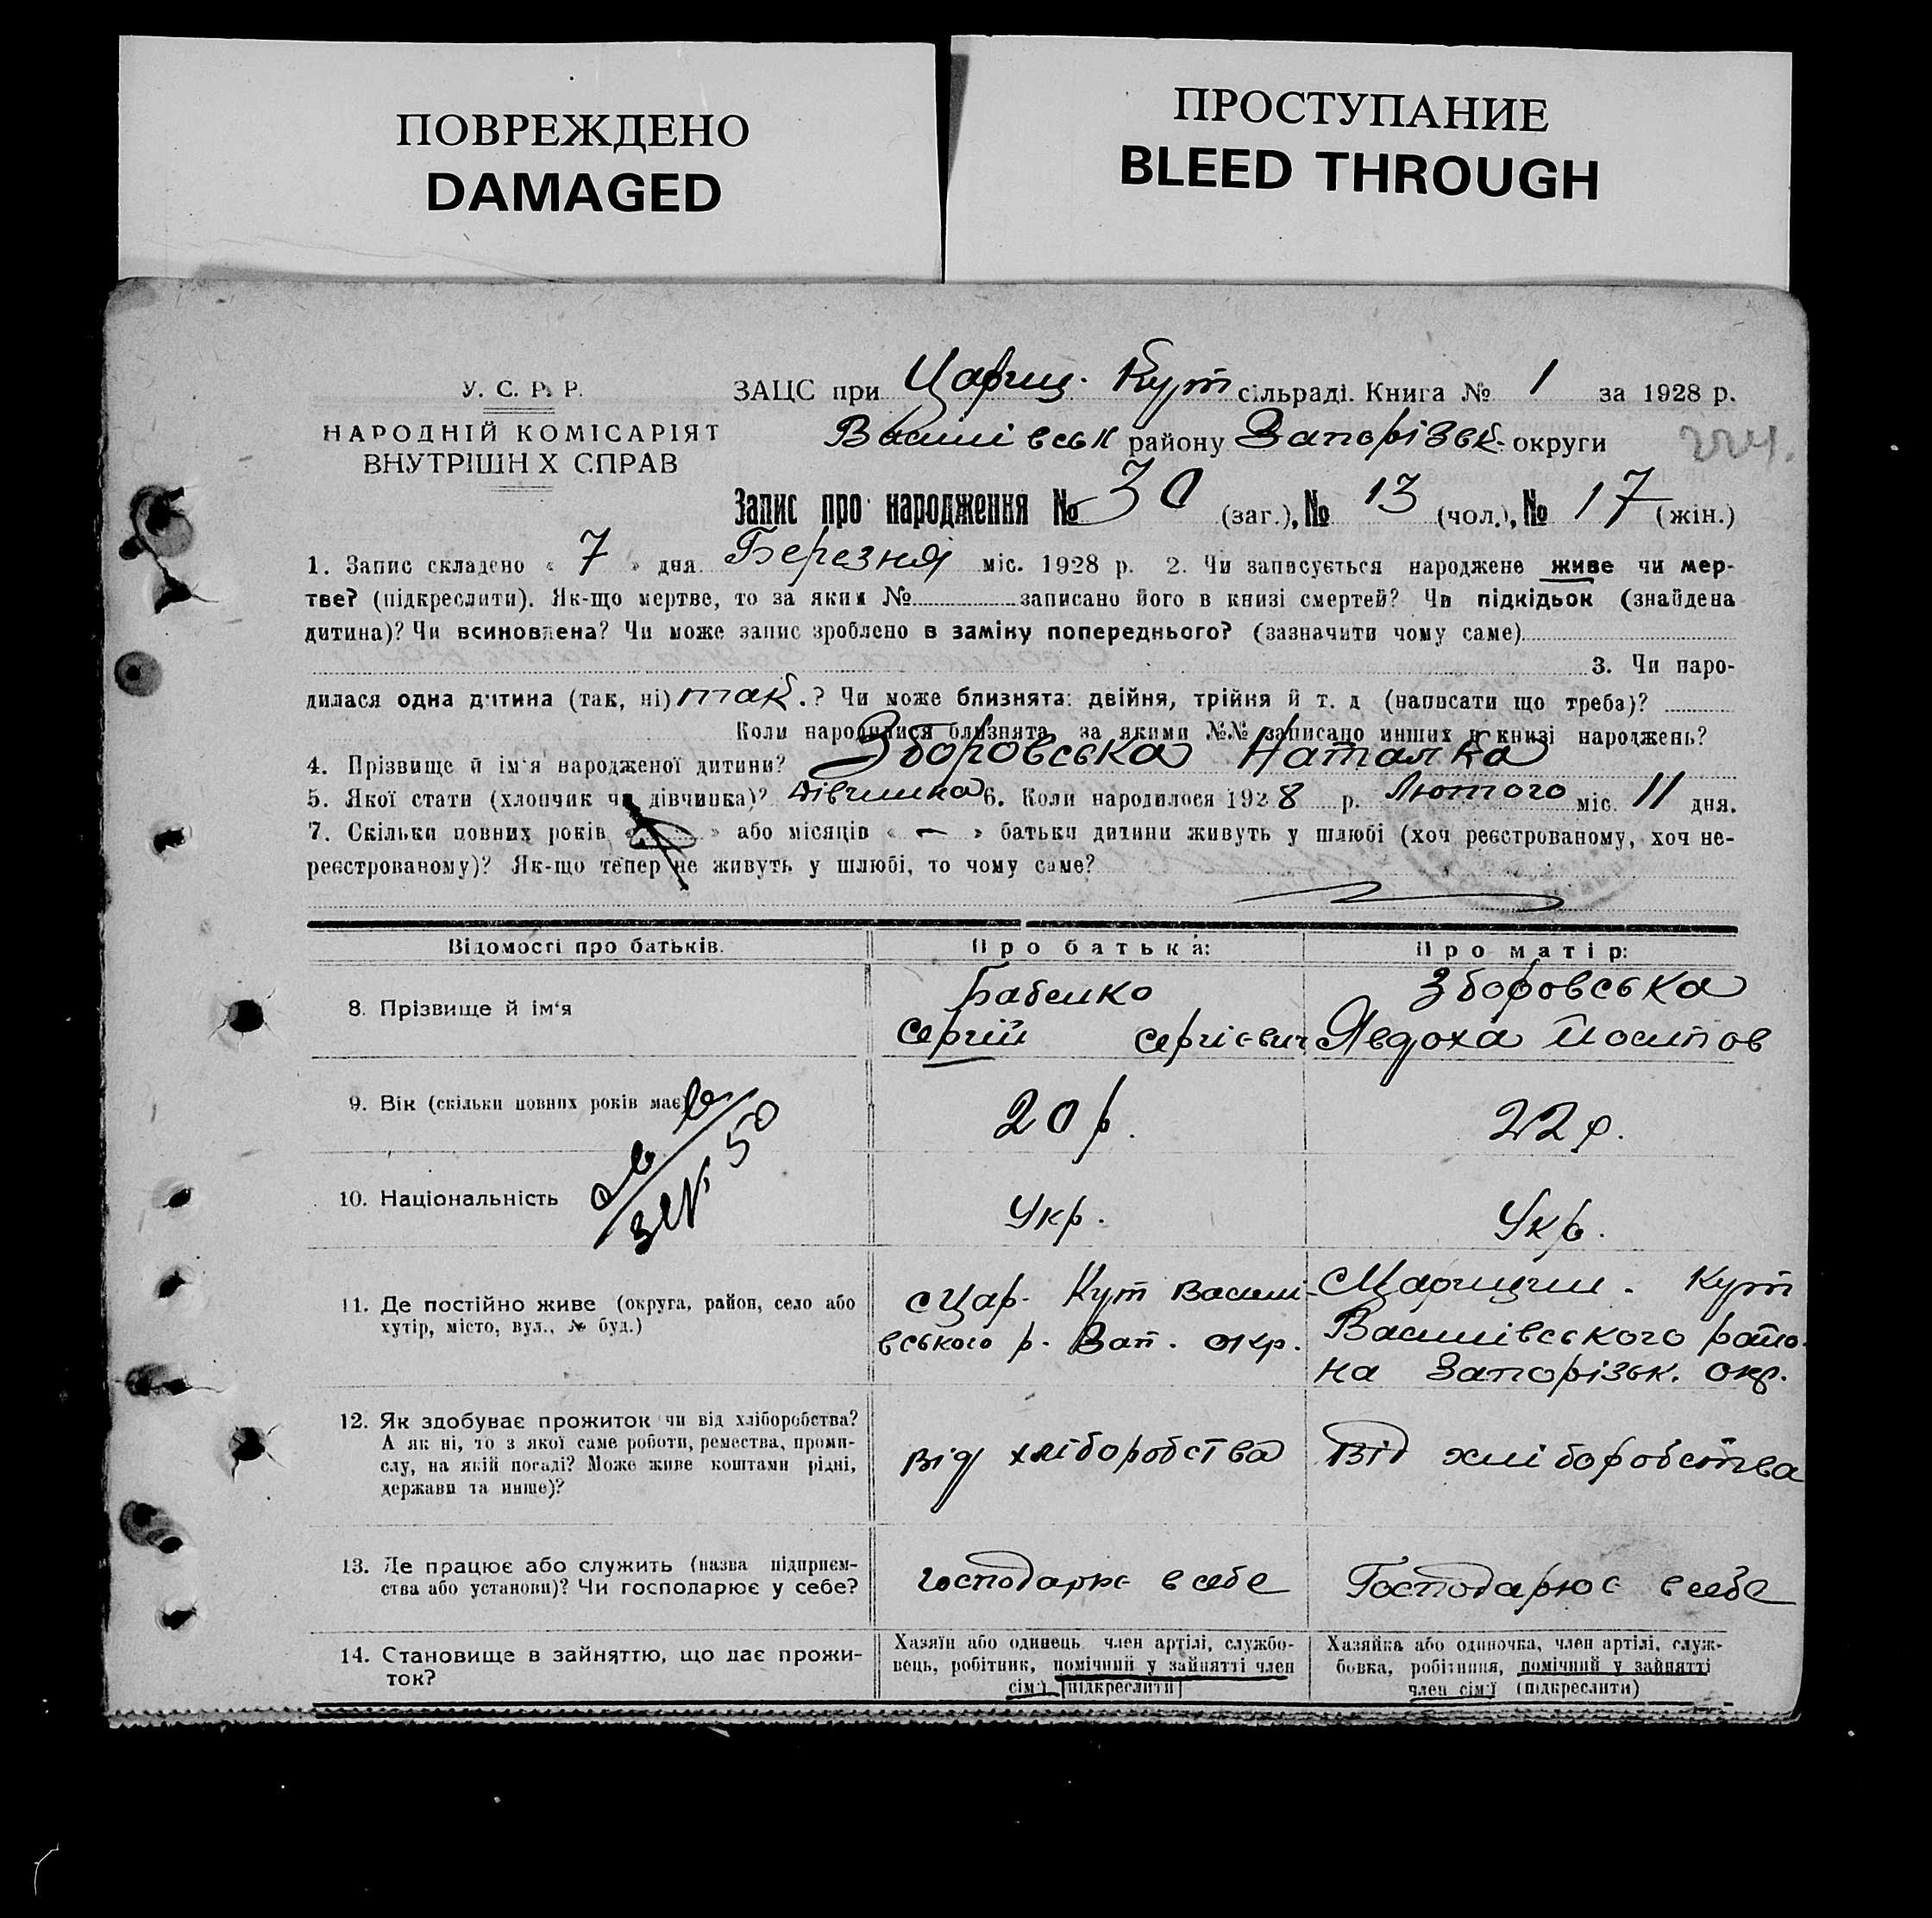 ПОВРЕЖДЕНО
DAMAGED
ПРОСТУПАНИЕ
BLEED THROUGH
У. С. Р. Р.
НАРОДНІЙ КОМІСАРІЯТ
ВНУТРІШН Х СПРАВ
ЗАЦС при Цариц. Кут сільраді. Книга № 1 за 1928 р.
Василівськ району Запорізьк. округи
224.
Запис про народження № 30 (заг.), № 13 (чол.), № 17 (жін.)
1. Запис складено « 7 » дня Березня міс. 1928 р. 2. Чи записується народжене живе чи мер-
тве? (підкреслити). Як-що мертве, то за яким № записано його в книзі смертей? Чи підкідьок (знайдена
дитина)? Чи всиновлена? Чи може запис зроблено в заміну попереднього? (зазначити чому саме)
3. Чи наро-
дилася одна дитина (так, ні) так. ? Чи може близнята: двійня, трійня й т. д (написати що треба)?
Коли народилися близнята, за якими №№ записано инших в книзі народжень?
4. Прізвище й ім'я народженої дитини? Зборовська Наталка
5. Якої стати (хлопчик чи дівчинка)? дівчинка 6. Коли народилося 1928 р. Лютого міс. 11 дня.
7. Скільки повних років « » або місяців « — » батьки дитини живуть у шлюбі (хоч реєстрованому, хоч не-
реєстрованому)? Як-що тепер не живуть у шлюбі, то чому саме?
Відомості про батьків. Про батька: Про матір:
8. Прізвище й ім'я
Бабенко
Сергій Сергієвич
Зборовська
Явдоха Йосипов
9. Вік (скільки повних років має)
20 р.
22 р.
10. Національність
Укр.
Укр.
11. Де постійно живе (округа, район, село або
хутір, місто, вул., № буд.)
с Цар. Кут Васили-
вського р. Зап. окр.
с Царицин. Кут
Василівського райо-
на Запорізьк. окр.
12. Як здобуває прожиток чи від хліборобства?
А як ні, то з якої саме роботи, ремества, проми-
слу, на якій посаді? Може живе коштами рідні,
держави та инше)?
від хліборобства
Від хліборобства
13. Де працює або служить (назва підприєм-
ства або установи)? Чи господарює у себе?
господарює в себе
Господарює в себе
14. Становище в зайняттю, що дає прожи-
ток?
Хазяїн або одинець, член артілі, службо-
вець, робітник, помічний у зайнятті член
сім'ї (підкреслити)
Хазяйка або одиночка, член артілі, служ-
бовка, робітниця, помічний у зайнятті
член сім'ї (підкреслити)